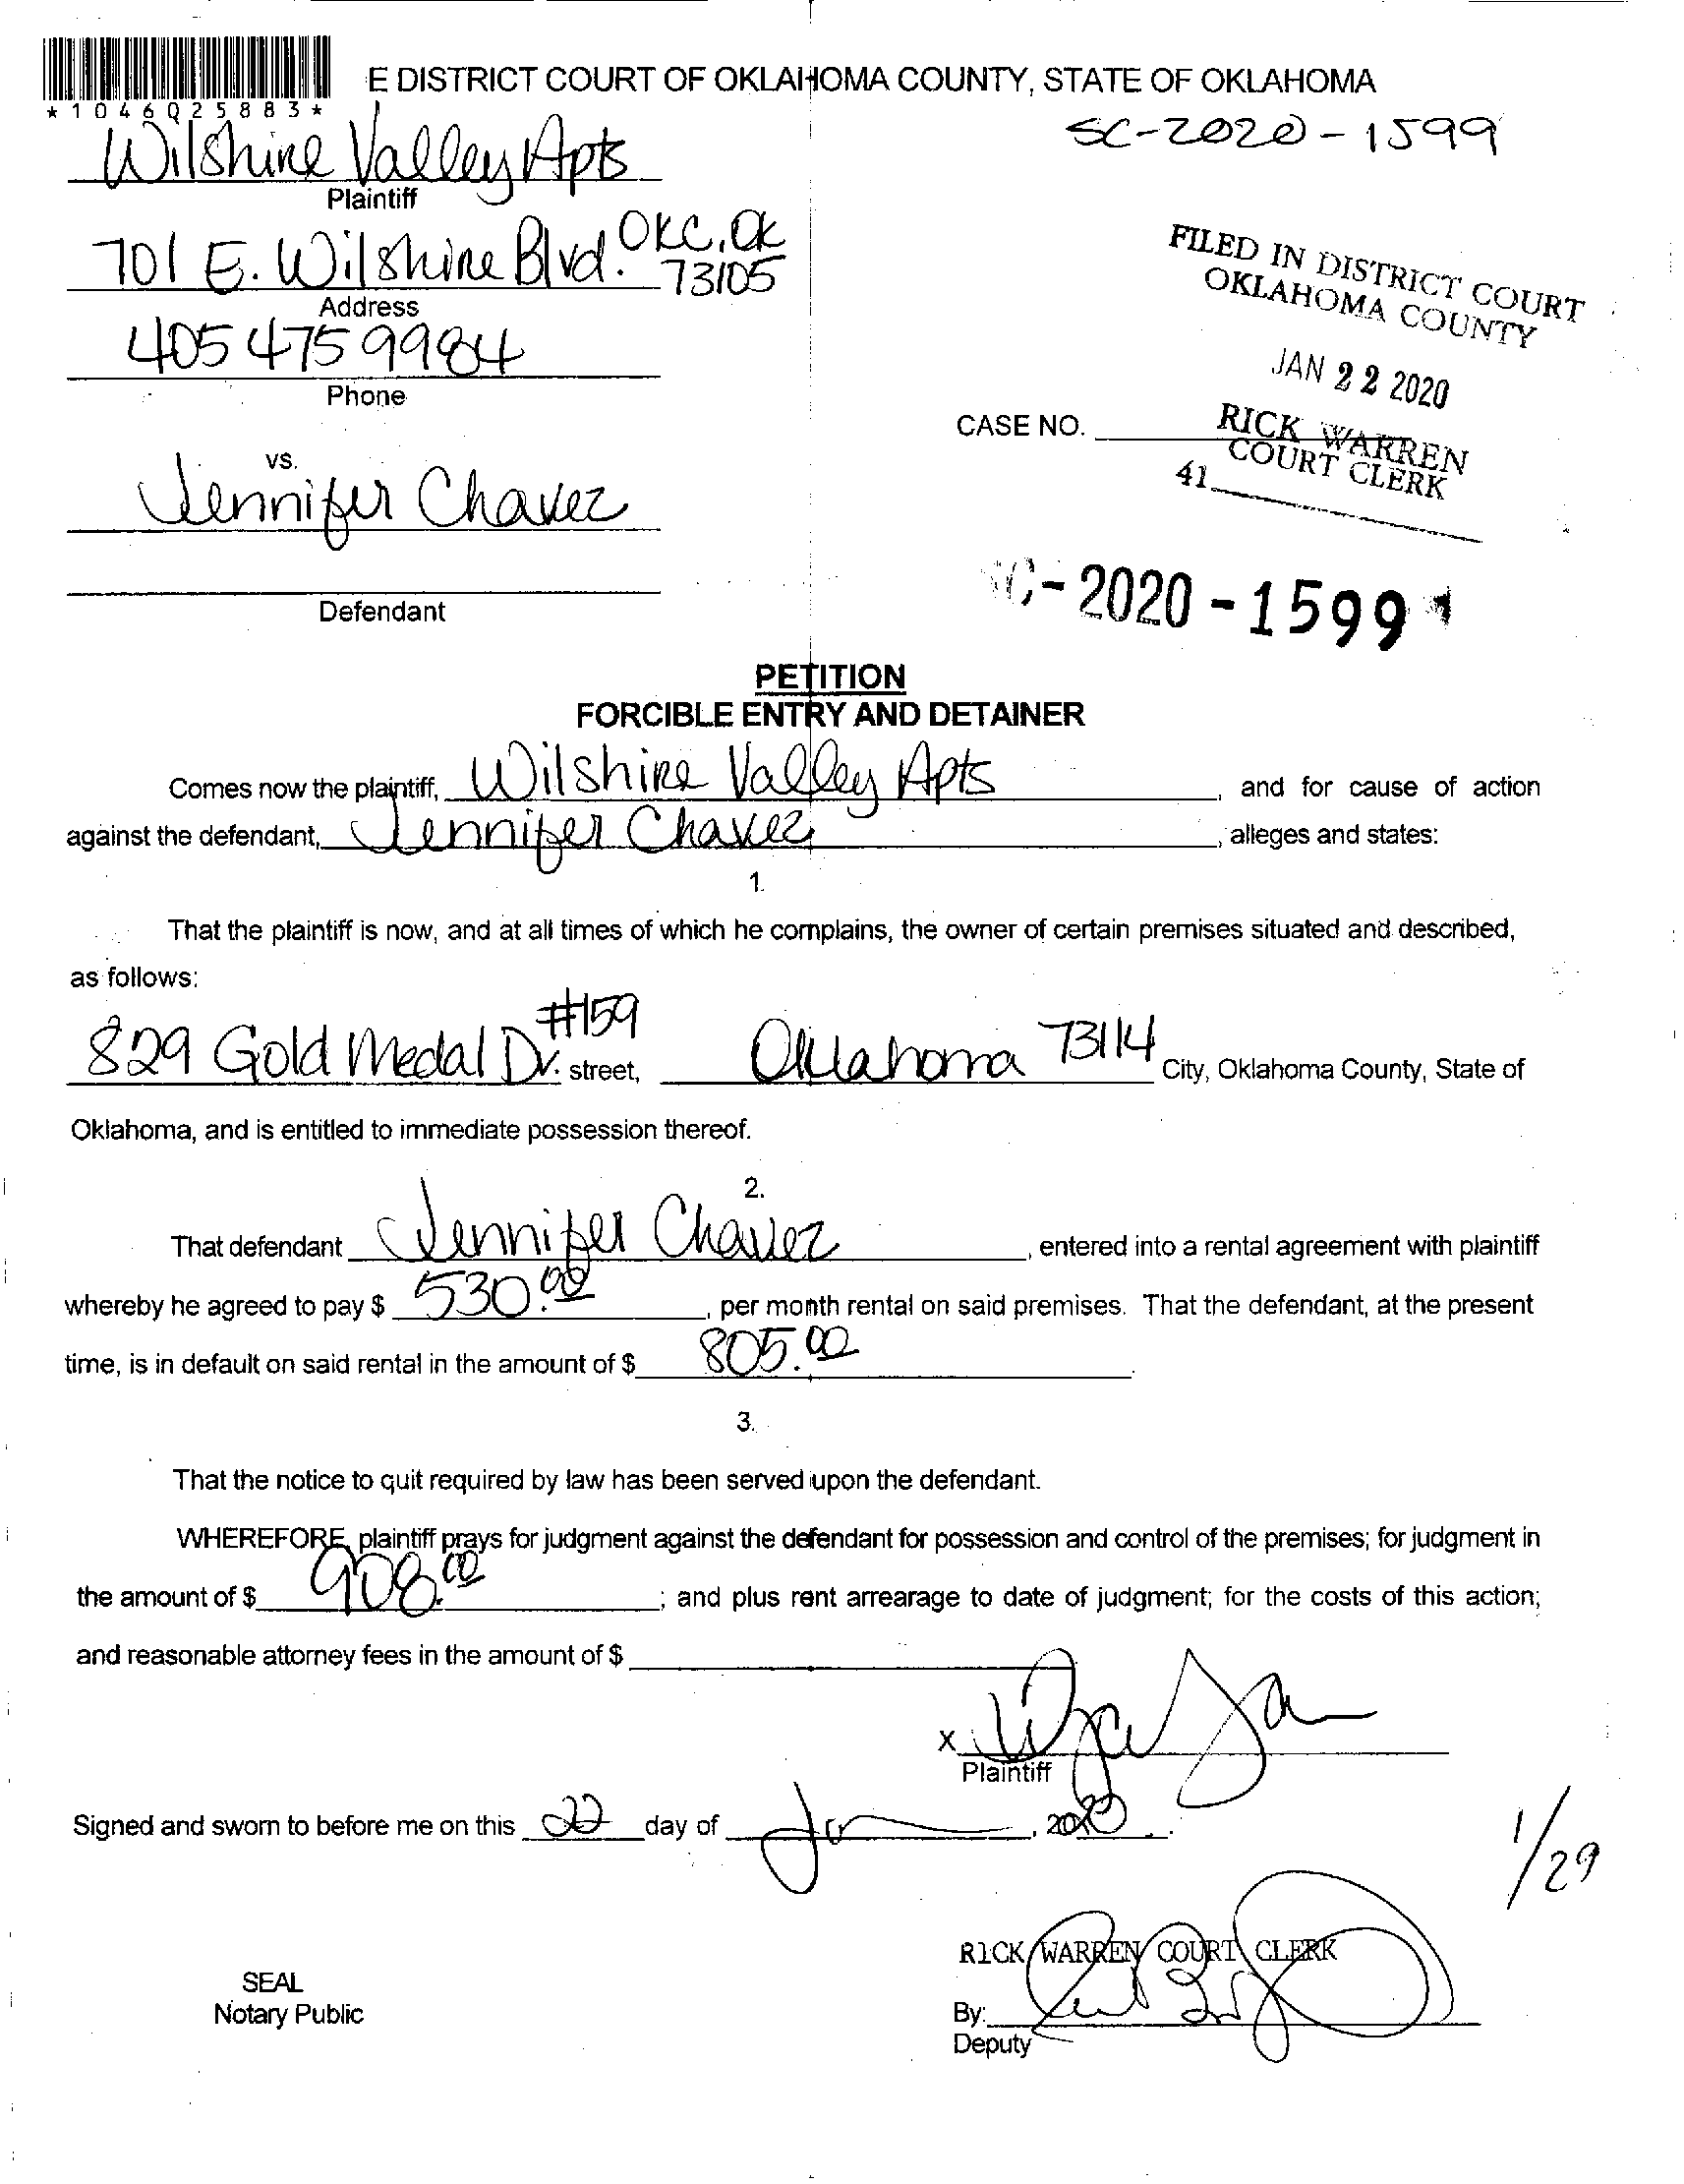 E DISTRICT COURT OF OKLAHOMA COUNTY, STATE OF OKLAHOMA
*1046025883*
SC-2020-1599
Wilshire Valley Apts
Plaintiff
701 E. Wilshire Blvd. OKC, OK 73105
Address
405 475 9984
Phone
FILED IN DISTRICT COURT
OKLAHOMA COUNTY
JAN 22 2020
RICK WARREN
COURT CLERK
41
CASE NO.
vs.
Jennifer Chavez
Defendant
SC-2020-1599
PETITION
FORCIBLE ENTRY AND DETAINER
Comes now the plaintiff, Wilshire Valley Apts, and for cause of action
against the defendant, Jennifer Chavez, alleges and states:
1.
That the plaintiff is now, and at all times of which he complains, the owner of certain premises situated and described,
as follows:
829 Gold Medal Dr. #159 street, Oklahoma 73114 City, Oklahoma County, State of
Oklahoma, and is entitled to immediate possession thereof.
2.
That defendant Jennifer Chavez, entered into a rental agreement with plaintiff
whereby he agreed to pay $ 530.00, per month rental on said premises. That the defendant, at the present
time, is in default on said rental in the amount of $ 805.00.
3.
That the notice to quit required by law has been served upon the defendant.
WHEREFORE, plaintiff prays for judgment against the defendant for possession and control of the premises; for judgment in
the amount of $ 908.00; and plus rent arrearage to date of judgment; for the costs of this action;
and reasonable attorney fees in the amount of $
X
Plaintiff
Signed and sworn to before me on this 22 day of Jan, 2020.
1/29
RICK WARREN COURT CLERK
SEAL
Notary Public
By:
Deputy